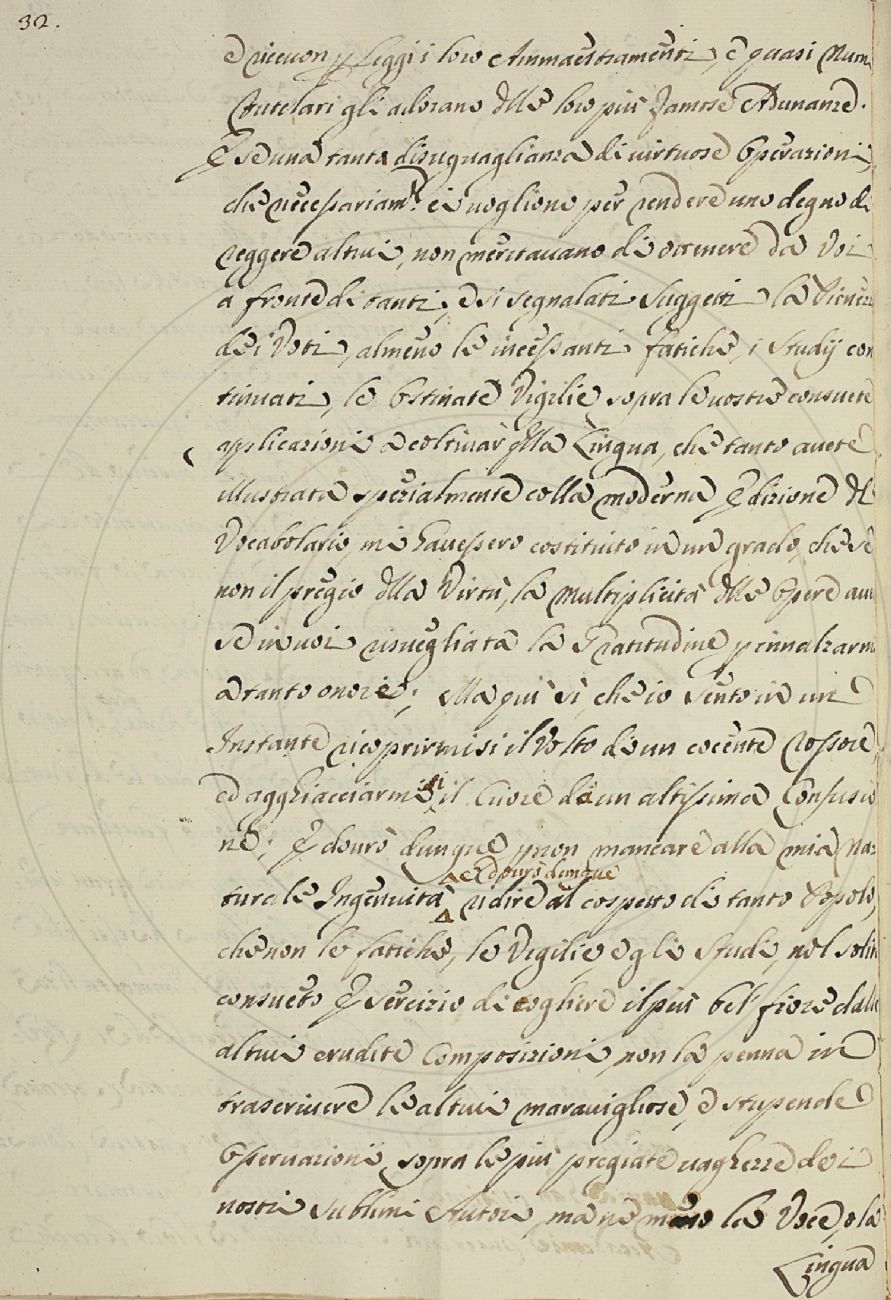 32.
e riceuon p leggi i loro Ammaestramenti, e quasi Num
tutelari gli adorano dlle loro più famose Adunanze.
E se una tanta disuguaglianza di virtuose Operazioni,
che necessariam.te ci vogliono per rendere uno degno di
reggere altrui, non meritauano di ottenere da Voi
a fronte di tanti, e si segnalati Suggetti la Pienez
de i Voti, almeno le incessanti fatiche, i Studij con
tinuati, le Ostinate Vigilie sopra le uostre consuete
applicazioni a coltiuar qlla Lingua, che tanto auete
illustrata spezialmente colla moderna Edizione dl
Vocabolario, mi hauessero costituito in un grado, che se
non il pregio dlla Virtù, la multiplicità dlle Opere aues
se in uoi risuegliata la Gratitudine p innalzarmi
a tanto onore; Ma qui sì, che io sento in un
Instante ricoprirmisi il Volto di un cocente rossore,
ed agghiacciarmi il Cuore di un altissima Confusio
ne; E dourò dunque p non mancare alla mia Na=
turale Ingenuità
e dourò dunque
ridire al cospetto di tanto Popolo,
che non le fatiche, le Vigilie, e gli Studi, nel solito
consueto Esercizio di cogliere il più bel fiore dalle
altrui erudite Composizioni, non la penna in
trascriuere le altrui marauigliose, e stupende
Osseruazioni sopra le più pregiate uaghezze de i
nostri sublimi Autori, ma ne meno la Voce, o la
Lingua